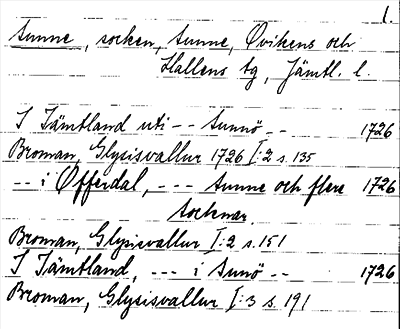 1.
Sunne, socken, Sunne, Ovikens och
Hallens tg, Jämtl. l.
I Jämtland uti -- Sunnö -- 1726
Broman, Glysisvallur 1726 I:2 s. 135
-- i Offerdal, --- Sunne och flere 1726
Socknar.
Broman, Glysisvallur I:2 s. 151
I Jämtland, --- i Sunö -- 1726
Broman, Glysisvallur I:3 s. 191